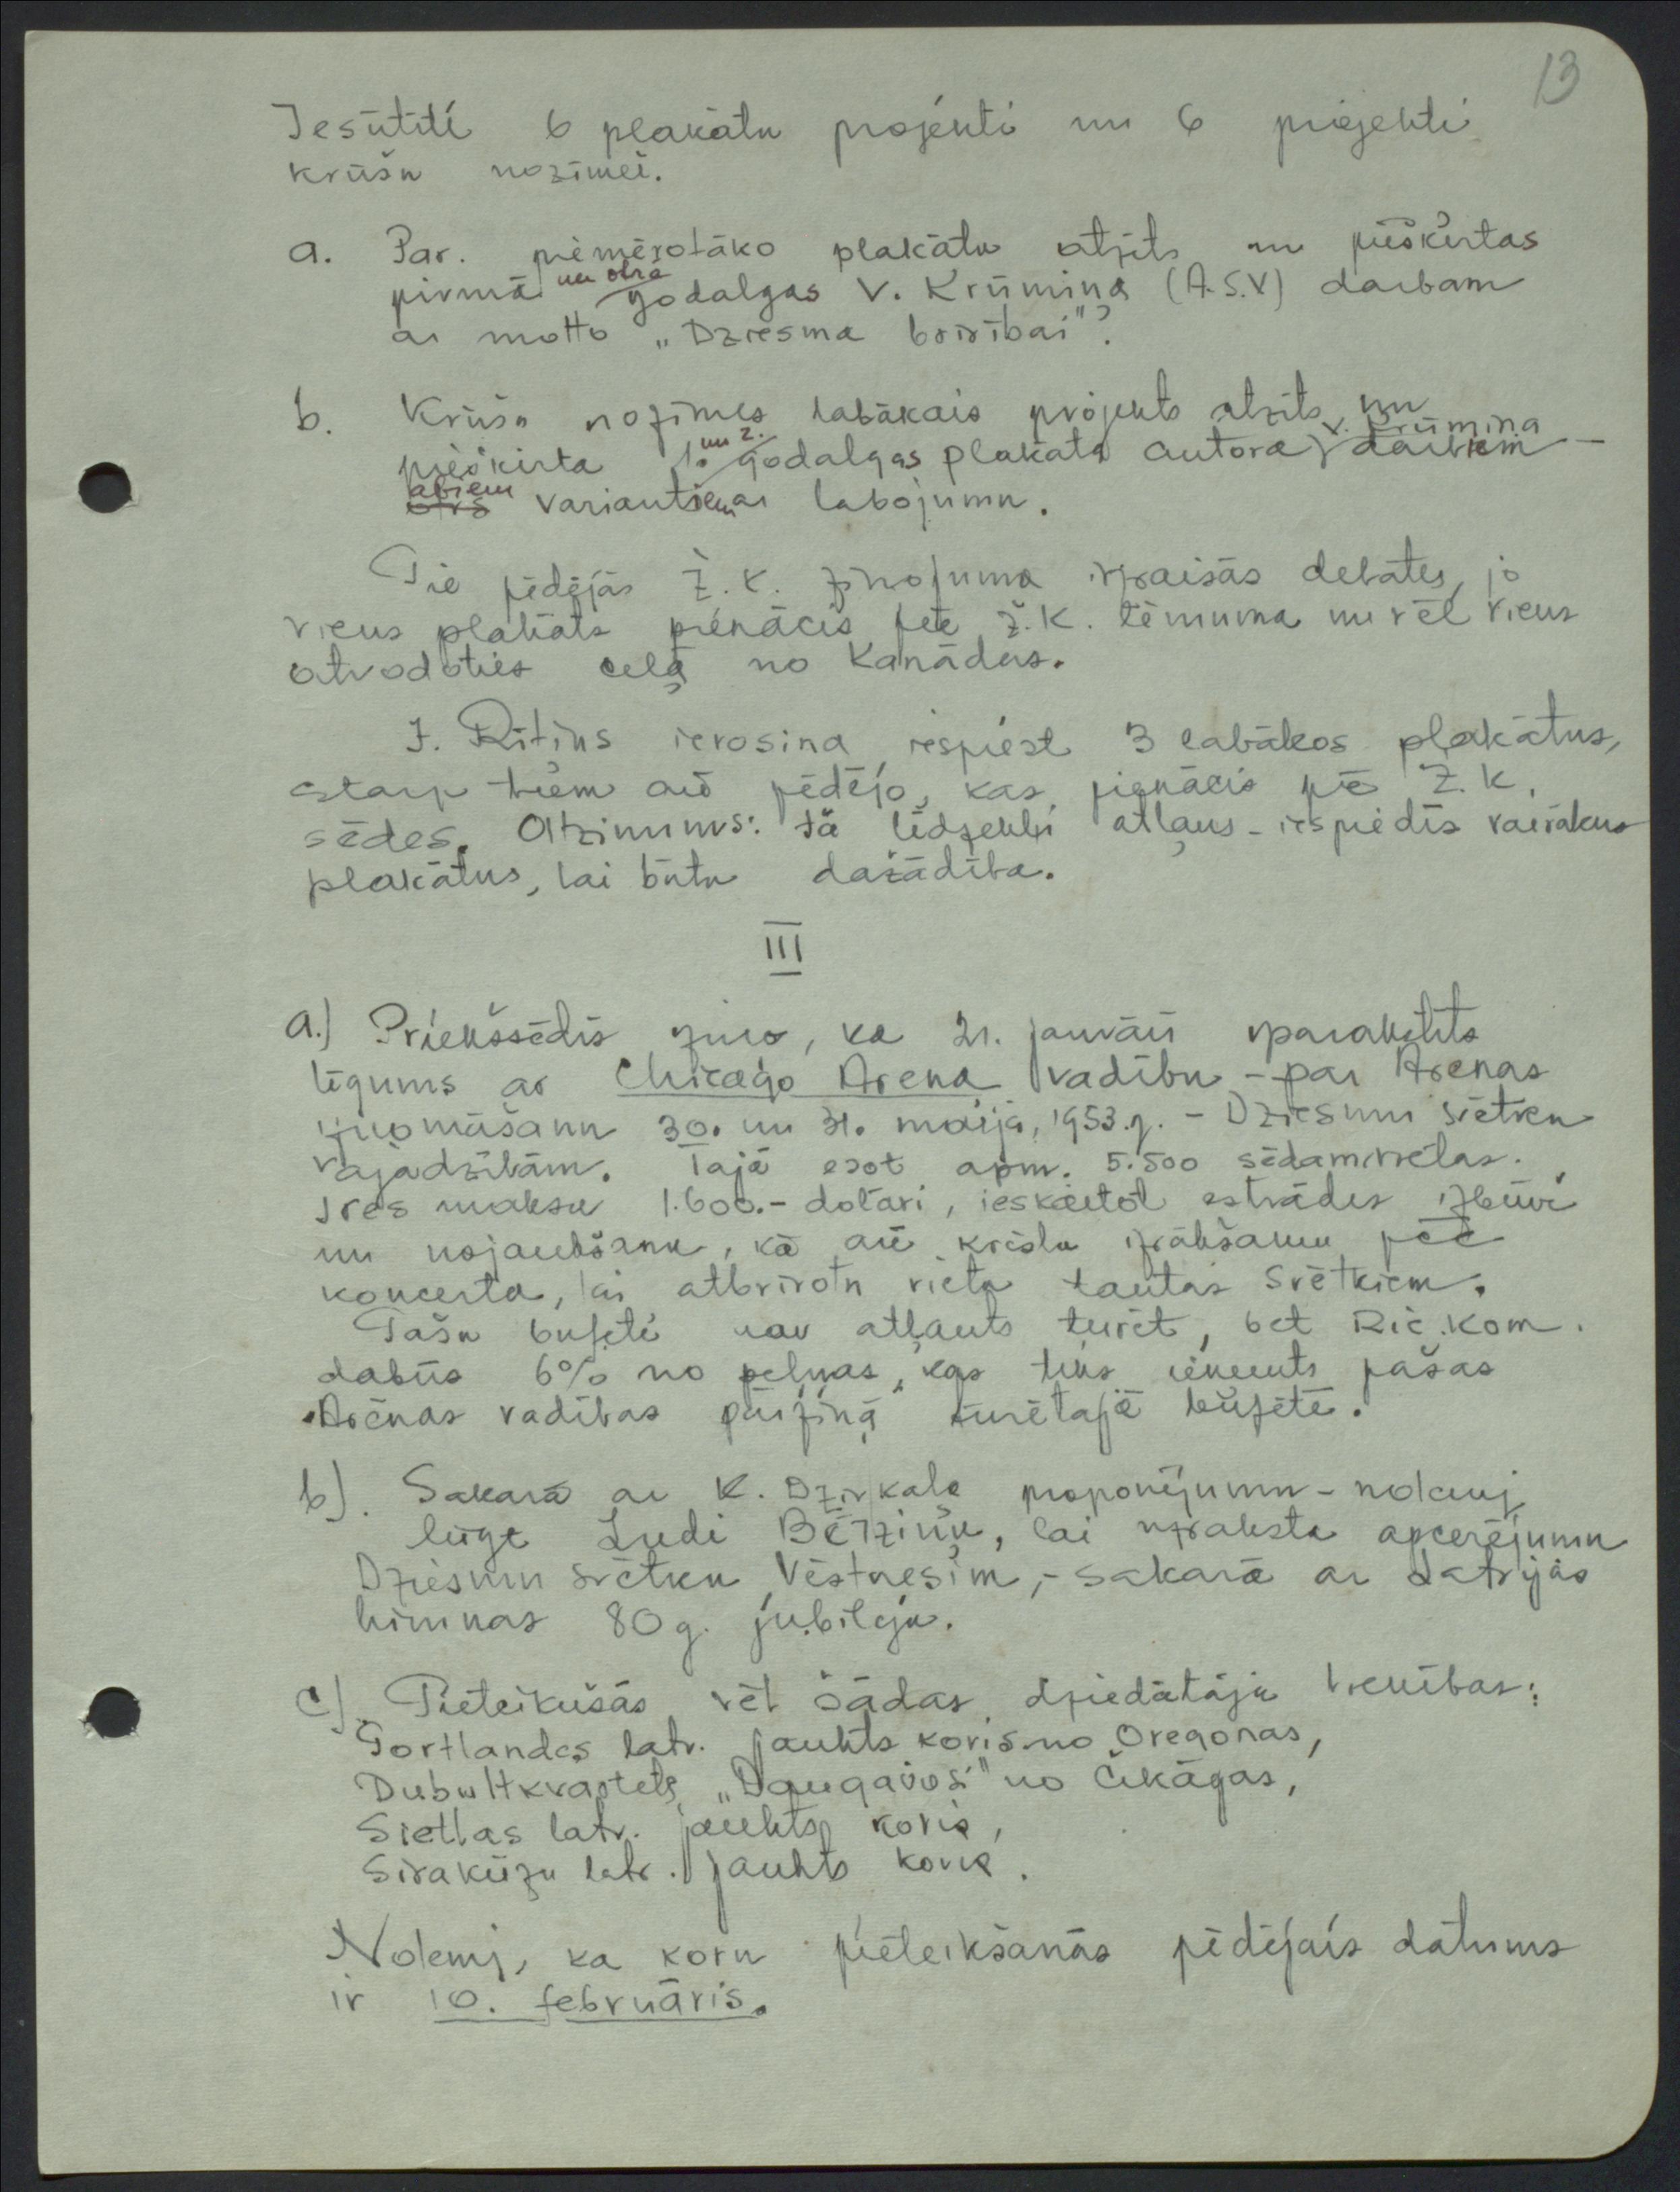 13
Iesūtīti 6 plakātu projekti un 6 projekti
krūšu nozīmei.
a. Par. piemērotāko plakātu atzīts un piešķirtas
pirmā un otrā godalgas V. Krūmiņa (A.S.V) darbam
ar motto „Dziesma brīvībai"?
b. Krūšu nozīmes labākais projekts atzīts un
piešķirta 1. un 2. godalgas plakāta autora V. Krūmiņa darbiem –
otrs abiem variantiem ar labojumu.
Pie pēdējās Ž.K. ziņojuma izraisās debates, jo
viens plakāts pienācis pēc Ž.K. lēmuma un vēl viens
atrodoties ceļā no Kanādas.
J. Rītiņš ierosina iespiest 3 labākos plakātus,
starp tiem arī pēdējo, kas pienācis pēc Ž.K.
sēdes. Atzinums: ja līdzekļi atļaus – iespiedīs vairākus
plakātus, lai būtu dažādība.
III
a.) Priekšsēdis ziņo, ka 21. janvārī parakstīts
līgums ar Chicago Arena vadību – par Arenas
iznomāšanu 30. un 31. maijā, 1953.g. – Dziesmu svētku
vajadzībām. Tajā esot apm. 5.500 sēdamvietas.
Īres maksa 1.600.- dolāri, ieskaitot estrādes izbūvi
un nojaukšanu, kā arī krēslu izvākšanu pēc
koncerta, lai atbrīvotu vietu tautas svētkiem.
Pašu bufeti nav atļauts turēt, bet Rīc.kom.
dabūs 6% no peļņas, kas tiks ieņemts pašas
Arēnas vadības pārziņā turētajā bufetē.
b). Sakarā ar K. Dzirkaļa proponējumu – nolemj
lūgt Ludi Bērziņu, lai uzraksta apcerējumu
Dziesmu svētku Vēstnesim, – sakarā ar Latvijas
himnas 80 g. jubileju.
c) Pieteikušās vēl šādas dziedātāju vienības:
Portlandes latv. jauktais koris no Oregonas,
Dubultkvartets „Daugavieši" no Čikāgas,
Sietlas latv. jaukts koris,
Sirakūzu latv. jaukts koris.
Nolemj, ka koru pieteikšanās pēdējais datums
ir 10. februāris.